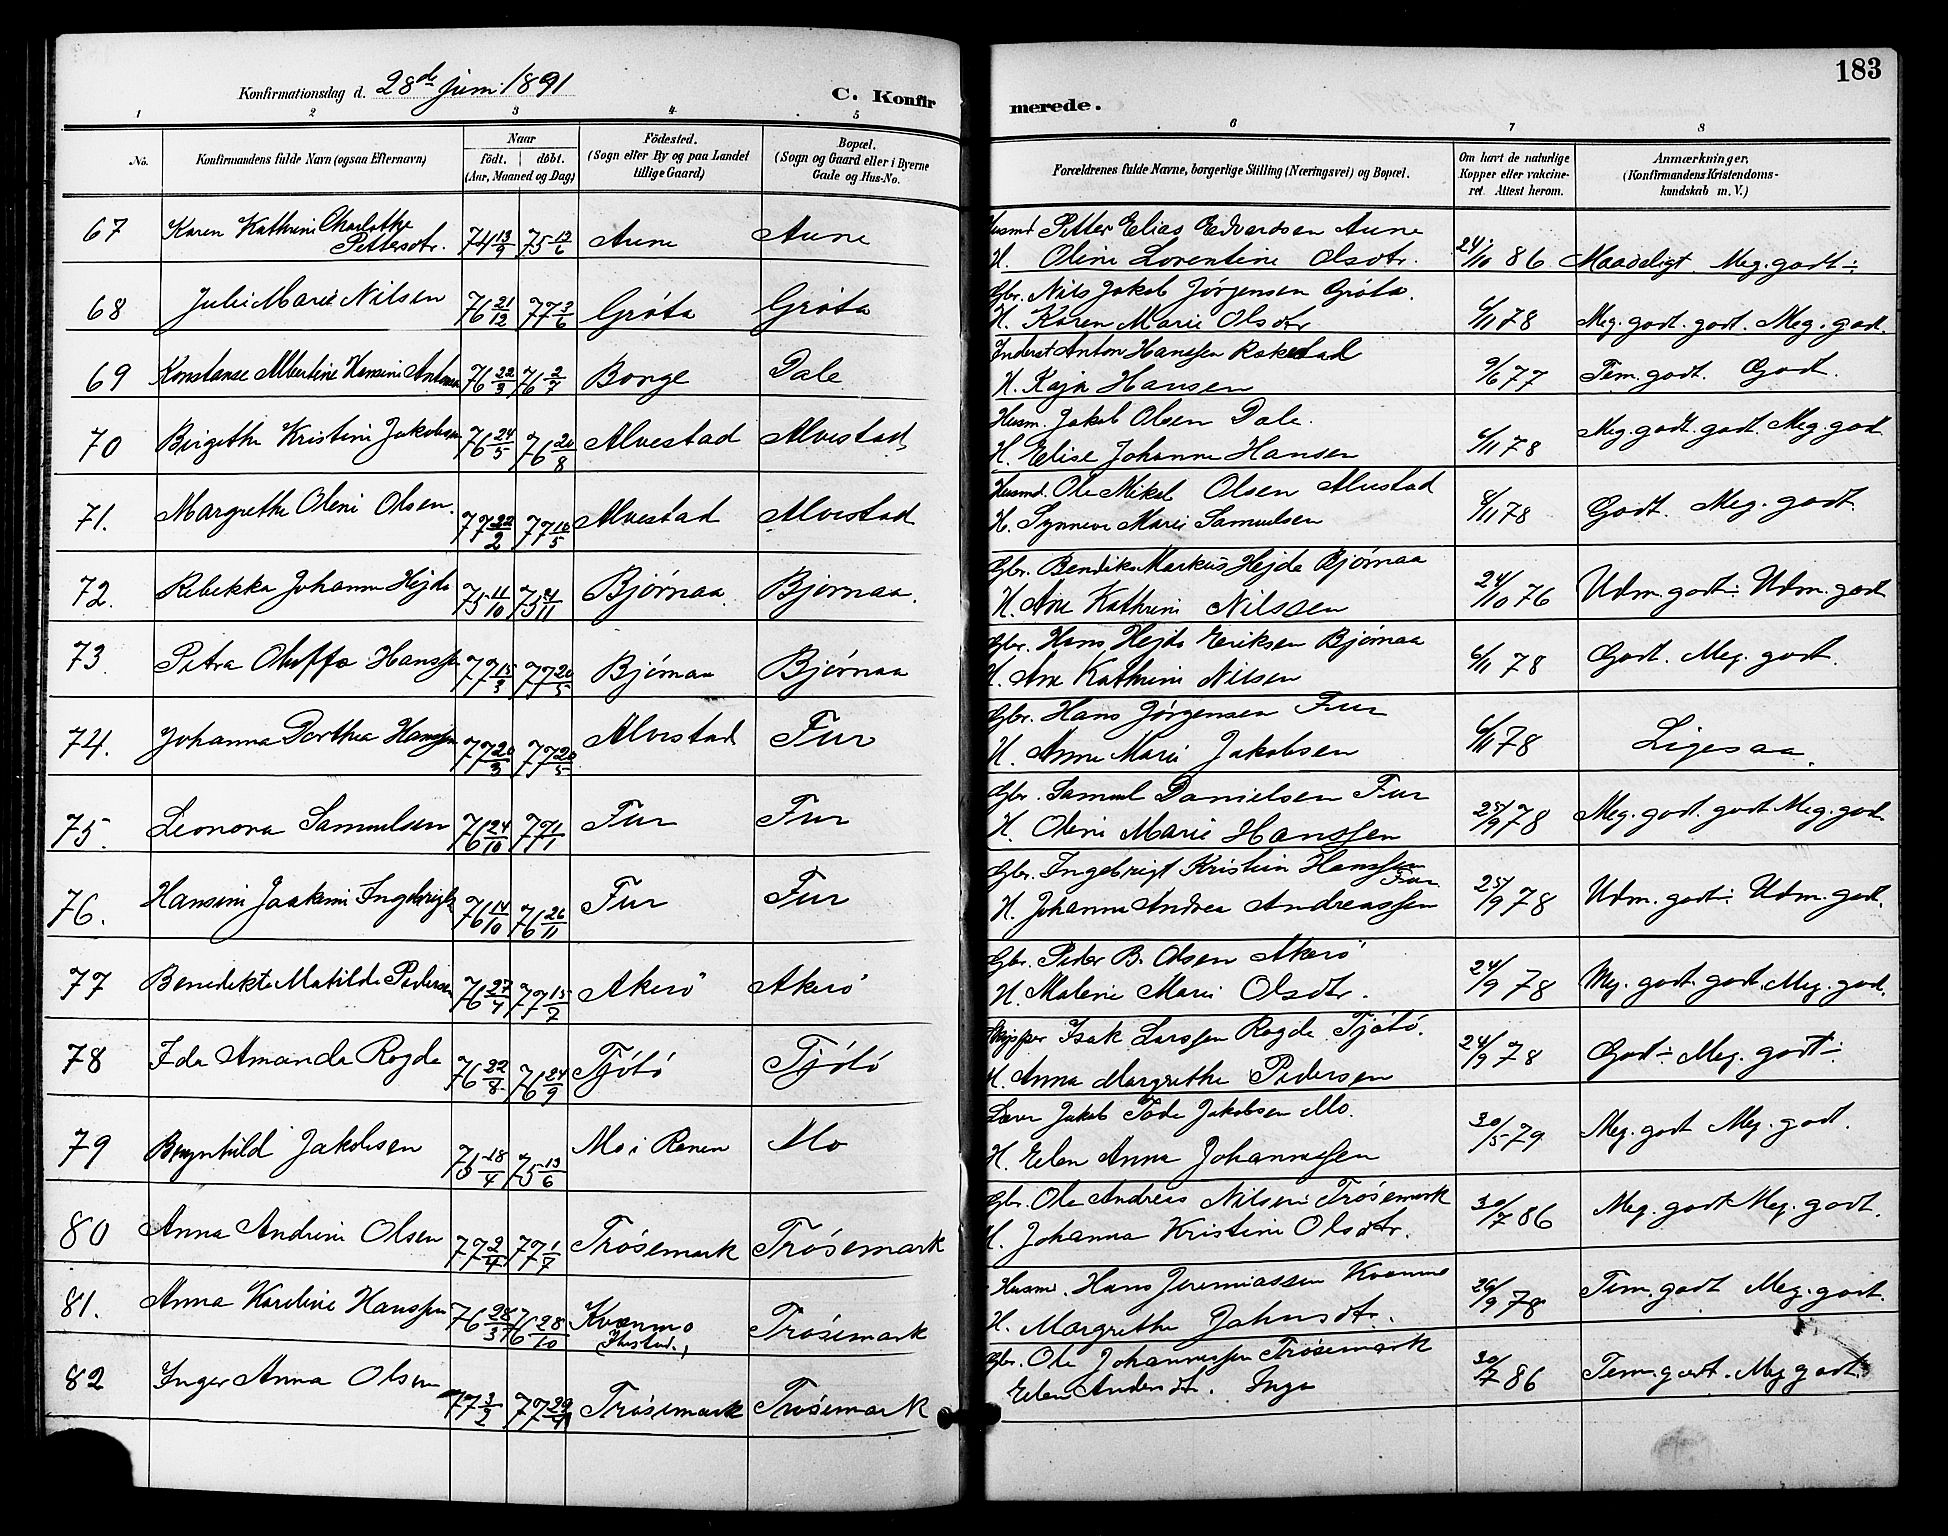 183
Konfirmationsdag d. 28de Juni 1891
C. Konfirmerede.
1 2 3 4 5 6 7 8
No. Konfirmandens fulde Navn (ogsaa Efternavn) Naar födt. döbt. (Aar, Maaned og Dag) Födested. (Sogn eller By og paa Landet tillige Gaard) Bopæl. (Sogn og Gaard eller i Byerne Gade og Hus-No. Forældrenes fulde Navne, borgerlige Stilling (Næringsvei) og Bopæl. Om havt de naturlige Kopper eller vakcineret. Attest herom. Anmærkninger, (Konfirmandens Kristendomskundskab m. V.)
67 Karen Kathrine Charlothe Pettersdtr. 74 13/9 75 13/6 Aune Aune Husmd Petter Elias Edvardsen Aune
H. Oline Lorentine Olsdtr. 24/10 86 Maadeligt Meg. godt÷
68 Julie Marie Nilsen 76 21/12 77 3/6 Gróta Gróta Gbr. Nils Jakob Jörgensen Gróta.
H. Karen Marie Olsdtr 6/11 78 Meg. godt. godt. Meg. godt.
69 Konstanse Albertine Hansine Antonsen 76 22/3 76 2/7 Borge Dale Inderst Anton Hanssen Rakestad
H. Kaja Hansen 9/6 77 Tem. godt. Godt.
70 Birgithe Kristine Jakobsen 76 24/5 76 20/8 Alvestad Alvestad Husm. Jakob Olsen Dale.
H. Elise Johanne Hansen 6/11 78 Meg. godt. godt. Meg. godt
71. Margrethe Oleni Olsen. 77 22/2 77 10/5 Alvestad Alvestad Husmd. Ole Mikal Olsen Alvestad
H. Synneve Marie Samuelsen 8/11 78 Godt. Meg. godt.
72. Rebekka Johanna Hejde 75 11/10 75 21/11 Bjórnaa. Bjórnaa. Gbr. Bendik Markus Hejde Bjórnaa
H. Ane Kathrine Nilssen 24/10 76 Udm. godt÷ Udm. godt
73. Petra Oluffa Hanssen 77 15/3 77 20/5 Bjórnaa Bjórnaa Gbr. Hans Hejde Eriksen Bjórnaa
H. Ane Kathrine Nilsen 6/11 78 Godt. Meg. godt.
74. Johanna Dorthea Hanssen 77 20/3 77 20/5 Alvestad Fur Gbr. Hans Jörgensen Fur
H. Anne Marie Jakobsen 6/11 78 Ligesaa.
75. Leonora Samuelsen 76 24/10 77 1/1 Fur Fur Gbr. Samuel Danielsen Fur
H. Oline Marie Hanssen 25/9 78 Meg. godt. godt. Meg. godt.
76. Hansine Joakime Ingebrigts 76 14/10 76 26/11 Fur Fur Gbr. Ingebrigt Kristian Hanssen Fur
H. Johanna Andrea Andreassen 25/9 78 Udm. godt÷ Udm. godt.
77 Benedikte Matilde Pedersen 76 27/4 77 15/7 Akerö Akerö Gbr. Peder B. Olsen Akerö
H. Malene Marie Olsdtr. 24/9 78 Meg. godt. godt. Meg. godt.
78 Ida Amanda Rogde 76 22/8 76 24/9 Tjótó Tjótó Isak Larssen Rogde Tjótó.
H. Anna Margrethe Pedersen 24/9 78 Godt÷ Meg. godt÷
79 Brynhild Jakobsen 75 18/4 75 13/6 Mo i Ranen Mo Lærer Jakob Jakobsen Mo.
H. Elen Anna Johannessen 30/5 79 Meg. godt Meg. godt.
80 Anna Andrine Olsen 77 2/4 77 1/7 Trósemark Trósemark Gbr. Ole Andreas Nilsen Trósemark
H. Johanna Kristine Olsdtr. 30/7 86 Meg. godt Meg. godt.
81. Anna Karoline Hanssen 76 28/3 76 28/10 Kvanmo Trósemark Husmd. Hans Jeremiassen Kvanmo
H. Margrethe Jahnsdtr. 26/9 78 Tem. godt Meg. godt.
82 Inger Anna Olsen 77 3/2 77 29/4 Trósemark Trósemark Gbr. Ole Johannessen Trósemark
Elen Andersdtr. 30/7 86 Tem. godt. Meg. godt.